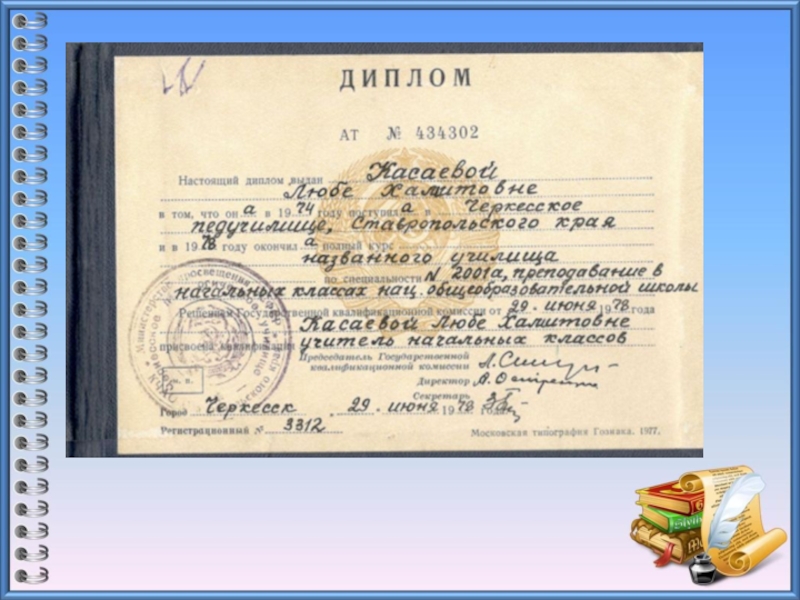 ДИПЛОМ
АТ № 434302
Настоящий диплом выдан Касаевой
Любе Халитовне
в том, что он а в 19 74 году поступил а в Черкесское
педучилище, Ставропольского края
и в 19 78 году окончил а полный курс
названного училища
по специальности N 2001а, преподавание в
начальных классах нац. общеобразовательной школы
Решением Государственной квалификационной комиссии от 29 . июня 19 78 года
Касаевой Любе Халитовне
присвоена квалификация учитель начальных классов
Председатель Государственной
квалификационной комиссии
Директор
Секретарь
Город Черкесск . 29 . июня 19 78
Регистрационный № 3312
Московская типография Гознака. 1977.
Министерство просвещения
м. п.